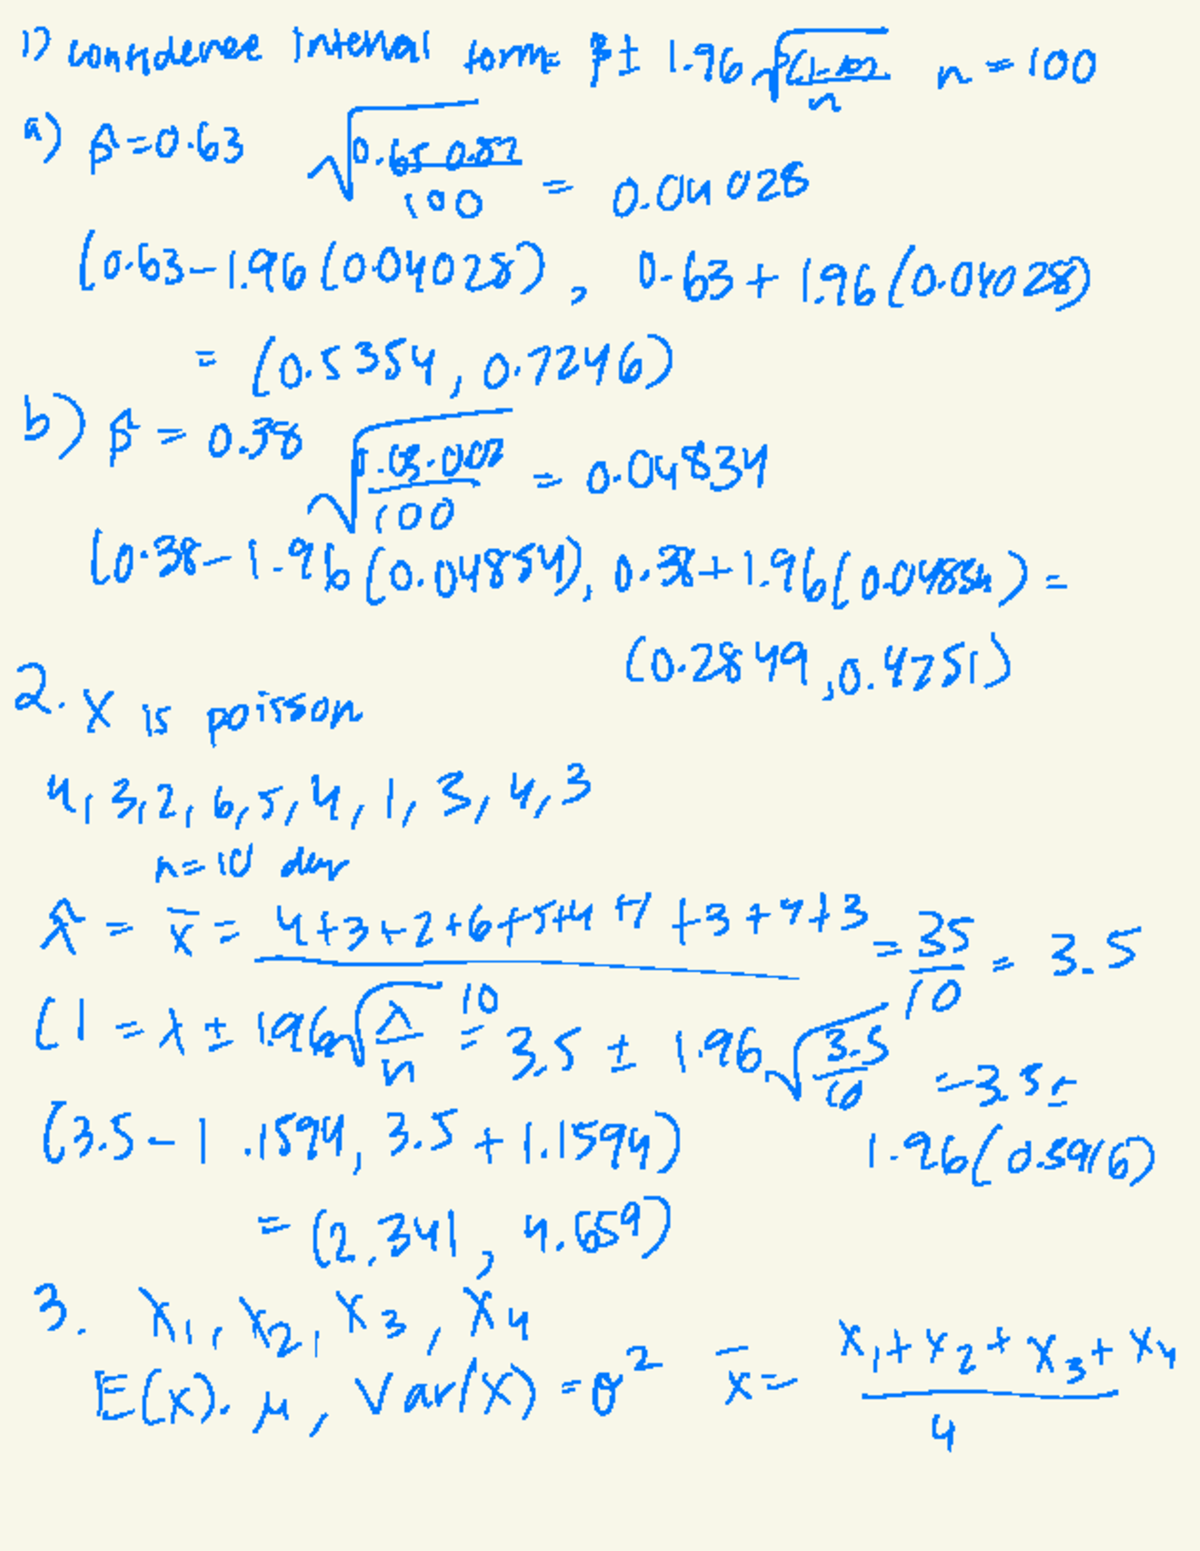 1) confidence interval form= p̂ ± 1.96 √(p(1-p)/n) n = 100
a) p̂ = 0.63 √(/100) = 0.04028
(0.63 - 1.96 (0.04028), 0.63 + 1.96 (0.04028)
= (0.5354, 0.7246)
b) p̂ = 0.38 √(/100) = 0.04834
(0.38 - 1.96 (0.04854), 0.38 + 1.96 (0.04854) =
(0.2849, 0.4751)
2. X is poisson
4, 3, 2, 6, 5, 4, 1, 3, 4, 3
n = 10
λ̂ = x̄ = 4+3+2+6+5+4+1+3+4+3 / 10 = 35/10 = 3.5
(1 = λ ± 1.96 √(λ/n) = 3.5 ± 1.96 √(3.5/10) = 3.5 ±
1.96 (0.5916)
(3.5 - 1.1594, 3.5 + 1.1594)
= (2.341, 4.659)
3. X₁, X₂, X₃, X₄
E(X). μ, Var(X) = σ² x̄ = X₁ + X₂ + X₃ + X₄ / 4